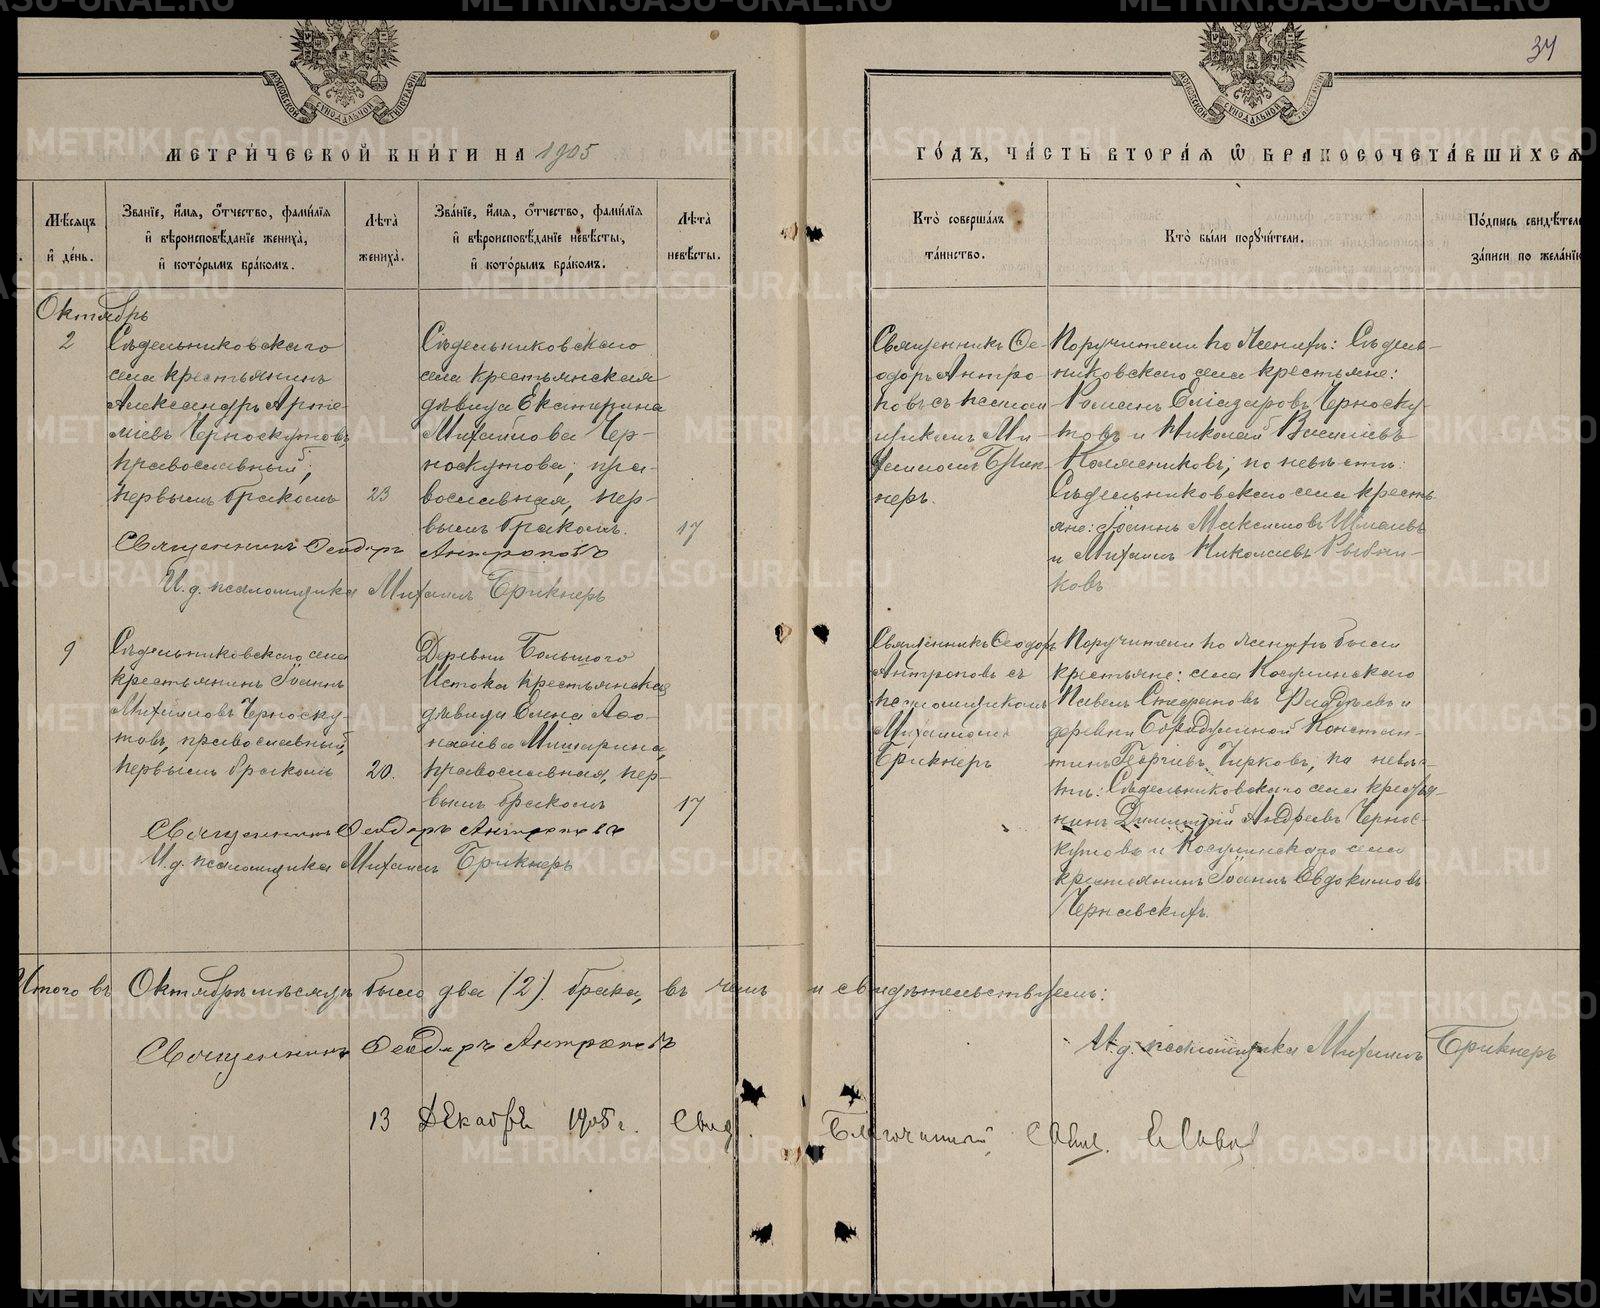 34
МЕТРИ́ЧЕСКОЙ КНИ́ГИ НА 1905
ГО́ДЪ, ЧА́СТЬ ВТОРА́Я Ѿ БРАКОСОЧЕТА́ВШИХСЯ
Мѣ́сяцъ и҆ де́нь.
Зва́нїе, и҆́мя, ѻ҆́тчество, фами́лїя
и҆ вѣроисповѣ́данїе жениха̀,
и҆ кото́рымъ бра́комъ.
Лѣ́та
жениха̀.
Зва́нїе, и҆́мя, ѻ҆́тчество, фами́лїя
и҆ вѣроисповѣ́данїе невѣ́сты,
и҆ кото́рымъ бра́комъ.
Лѣ́та
невѣ́сты.
Кто̀ соверша́лъ
та́инство.
Кто̀ бы́ли поручи́тели.
По́дпись свидѣ́теле
за́писи по жела́нїю
Октябрь
2
Сѣдельниковскаго
села крестьянинъ
Александръ Арте-
міевъ Черноскутовъ,
православный;
первымъ бракомъ
23
Сѣдельниковскаго
села крестьянская
дѣвица Екатерина
Михайлова Чер-
носкутова; пра-
вославная, пер-
вымъ бракомъ.
17
Священникъ Ѳе-
одоръ Антро-
повъ съ псалом-
щикомъ Ми-
хаиломъ Брик-
неръ.
Поручители по женихѣ: Сѣдель-
никовскаго села крестьяне:
Романъ Еліазаровъ Черноску-
товъ и Николай Василіевъ
Колясниковъ; по невѣстѣ:
Сѣдельниковскаго села кресть
яне: Іоаннъ Максимовъ
и Михаилъ Николаевъ Рыбни-
ковъ
Священникъ Ѳеодоръ Антроповъ
И.д. псаломщика Михаилъ Брикнеръ
9
Сѣдельниковскаго села
крестьянинъ Іоаннъ
Михаиловъ Черноску-
товъ, православный,
первымъ бракомъ
20.
Деревни Большого
Истока крестьянская
дѣвица Елена Аѳо-
насіева Мишарина,
православная, пер-
вымъ бракомъ
17
Священникъ Ѳеодоръ
Антроповъ съ
псаломщикомъ
Михаиломъ
Брикнеръ
Поручители по женихѣ были
крестьяне: села Косулинскаго
Павелъ Стефановъ Фадѣевъ и
деревни Бородулиной Констан-
тинъ Георгіевъ Чирковъ, по невѣс-
тѣ: Сѣдельниковскаго села крестья-
нинъ Димитрій Андреевъ Чернос-
кутовъ и Косулинскаго села
крестьянинъ Іоаннъ Евдокимовъ
Чернавскихъ.
Священникъ Ѳеодоръ Антроповъ
И.д. псаломщика Михаилъ Брикнеръ
Итого въ Октябрѣ мѣсяцѣ было два (2) брака, въ чемъ и свидѣтельствуемъ:
Священникъ Ѳеодоръ Антроповъ
И.д. псаломщика Михаилъ Брикнеръ
13 Декабря 1905 г. Свид. Благочинный, Свящ.
METRIKI.GASO-URAL.RU